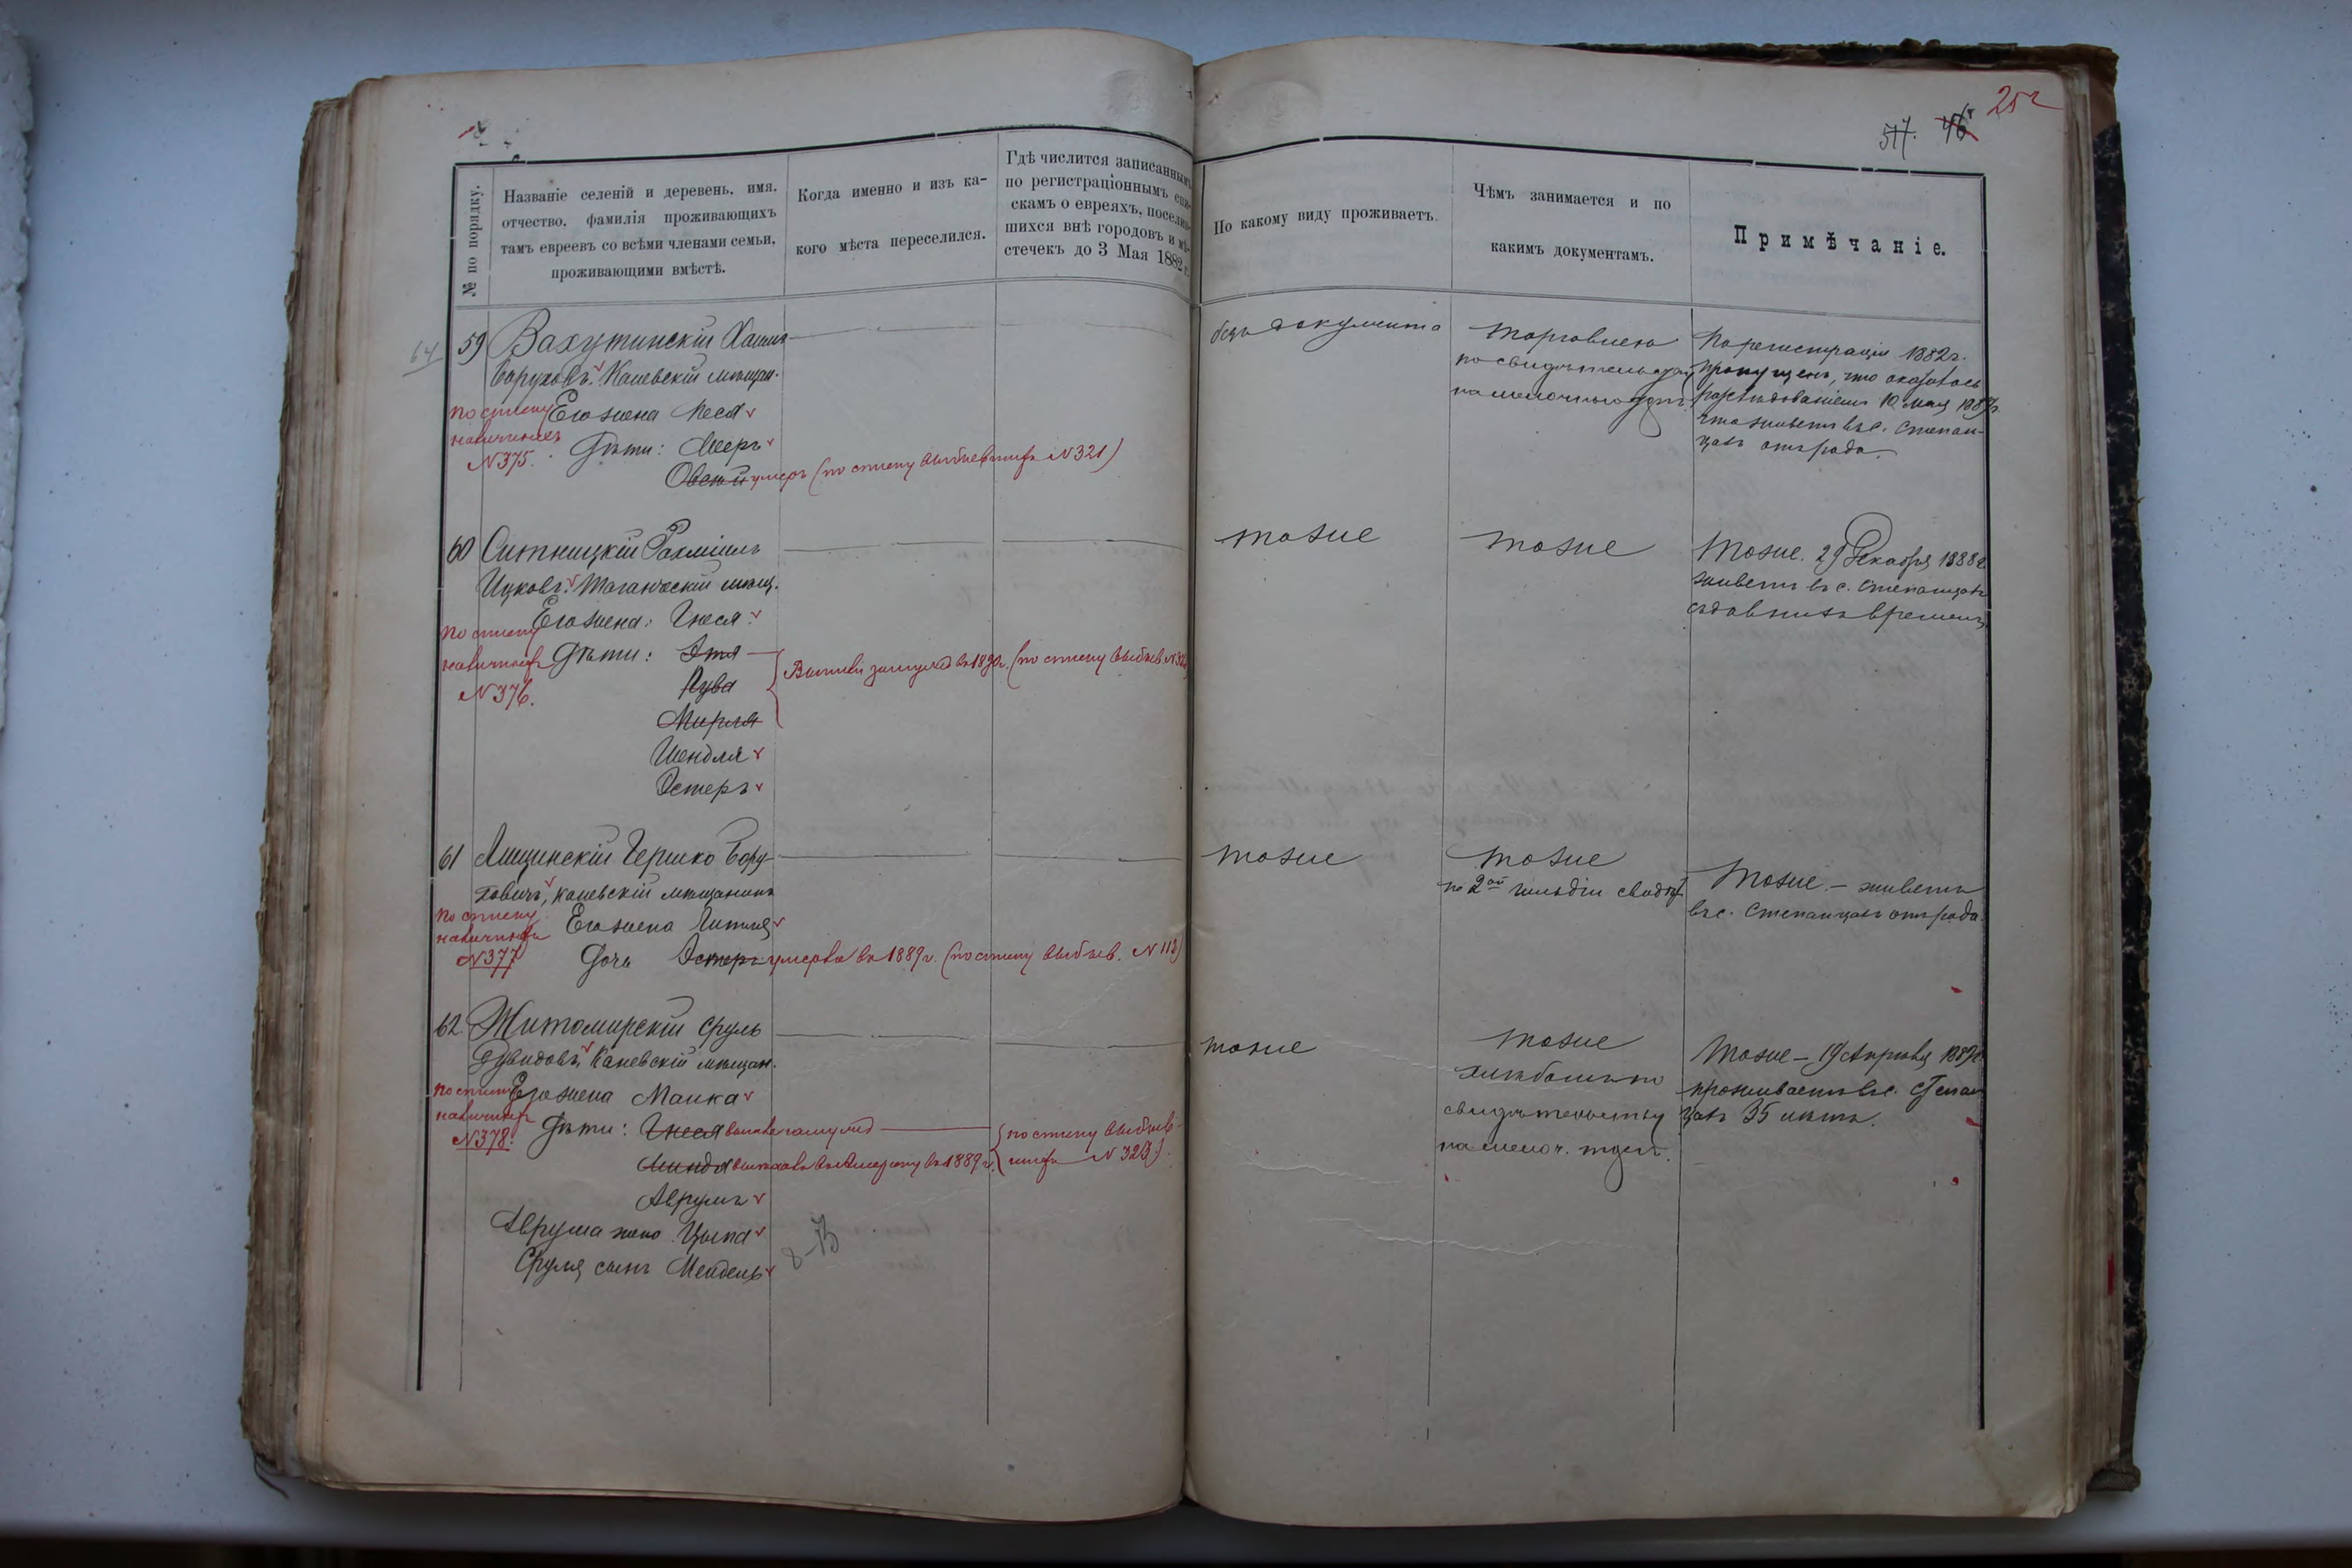 252
517. 46
№ по порядку.
Названіе селеній и деревень, имя,
отчество, фамилія проживающихъ
тамъ евреевъ со всѣми членами семьи,
проживающими вмѣстѣ.
Когда именно и изъ ка-
кого мѣста переселился.
Гдѣ числится записаннымъ
по регистраціоннымъ спи-
скамъ о евреяхъ, поселив-
шихся внѣ городовъ и мѣ-
стечекъ до 3 Мая 1882 г.
По какому виду проживаетъ.
Чѣмъ занимается и по
какимъ документамъ.
Примѣчаніе.
64
59 Вахутинскій Хаимъ
Боруховъ. Каневскій мѣщан.
Его жена Песя
Дѣти: Мееръ
Овсѣй умеръ (по списку выбывшихъ N 321)
по списку
наличныхъ
N 375.
безъ документа
торговлею
по свидѣтельству
на мелочный торг.
По регистраціи 1882 г.
пропущенъ, что оказалось
разслѣдованіемъ 10 мая 1889 г.
что живетъ въ с. Степан-
цахъ отъ рода.
60 Ситницкій Рахміилъ
Ицковъ. Таганчскій мѣщ.
Его жена: Гнеся
Дѣти: Этя
Рува
Мирля
Шендля
Эстеръ
Вышли замужъ въ 189 г. (по списку выбыв. N 322)
по списку
наличныхъ
N 376.
тоже
тоже
Тоже. 29 Декабря 1888 г.
живетъ въ с. Степанцахъ
съ давнихъ времен.
61 Лищинскій Гершко Бору-
ховичъ, Каневскій мѣщанинъ
Его жена
Дочь Эстеръ умерла въ 1889 г. (по списку выбыв. N 113)
по списку
наличныхъ
N 377
тоже
тоже
по 2ой гильдіи свидѣт.
Тоже. – живетъ
въ с. Степанцахъ отъ рода.
62. Житомирскій Сруль
Дувидовъ, Каневскій мѣщан.
Его жена Манка
Дѣти: Гнеся вышла замужъ
Минда выѣхала въ Америку въ 1889 г.
(по списку выбыв-
шихъ N 323)
Аврумъ
Аврума жена Цыпа
Сруля сынъ Мендель
по списку
наличныхъ
N 378.
8-
тоже
тоже
хлѣбомъ по
свидѣтельству
на мелоч. торг.
Тоже – 19 Апрѣля 1889 г.
проживаетъ въ с. Степан-
цахъ 35 лѣтъ.